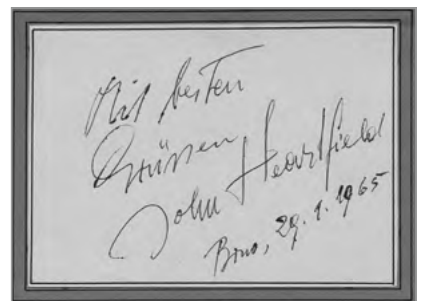 Mit besten
Grüssen,
John Heartfield
Brno, 29.1.1965